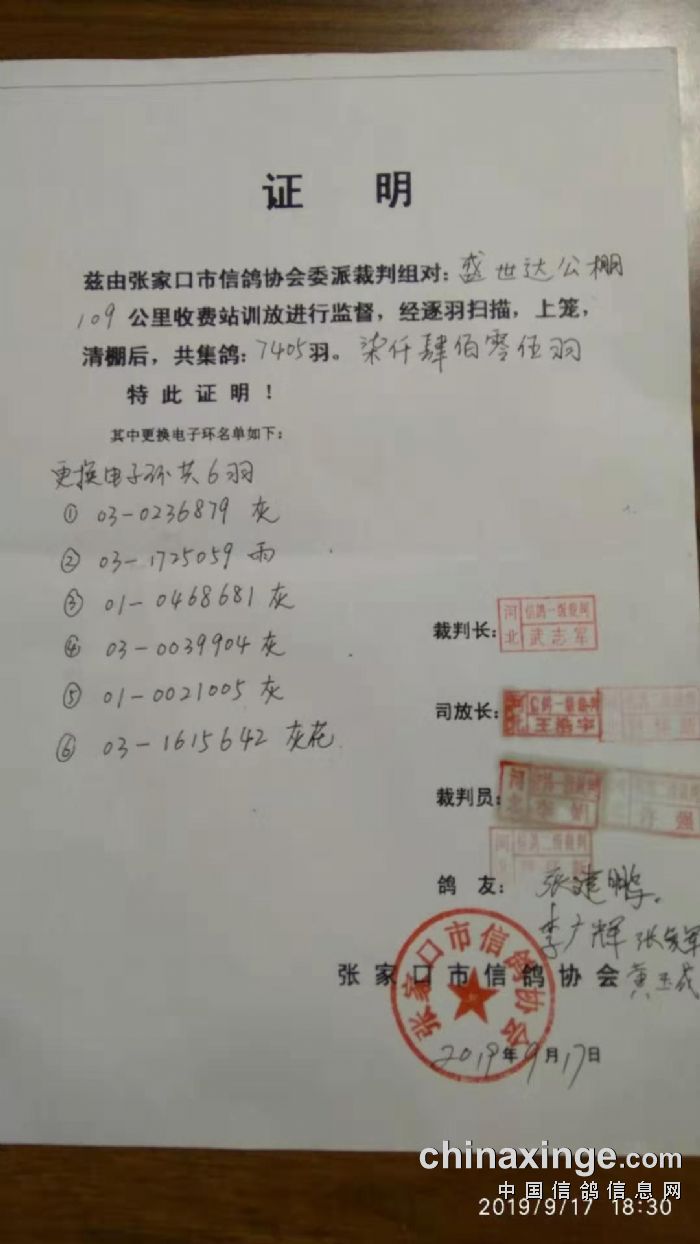 证 明
兹由张家口市信鸽协会委派裁判组对：盛世达公棚
109 公里收费站训放进行监督，经逐羽扫描，上笼，
清棚后，共集鸽：7405羽。柒仟肆佰零伍羽
特此证明！
其中更换电子环名单如下：
更换电子环共6羽
① 03-0236879 灰
② 03-1725059 雨
③ 01-0468681 灰
④ 03-0039904 灰
⑤ 01-0021005 灰
⑥ 03-1615642 灰花
裁判长：
河北 信鸽一级裁判 武志军
司放长：
河北 信鸽一级裁判
裁判员：
河
河北 信鸽二级裁判
鸽 友：张建鹏
李广辉 张
张家口市信鸽协会 黄玉
张家口市信鸽协会
2019年9月17日
chinaxinge.com
中国信鸽信息网
2019/9/17 18:30